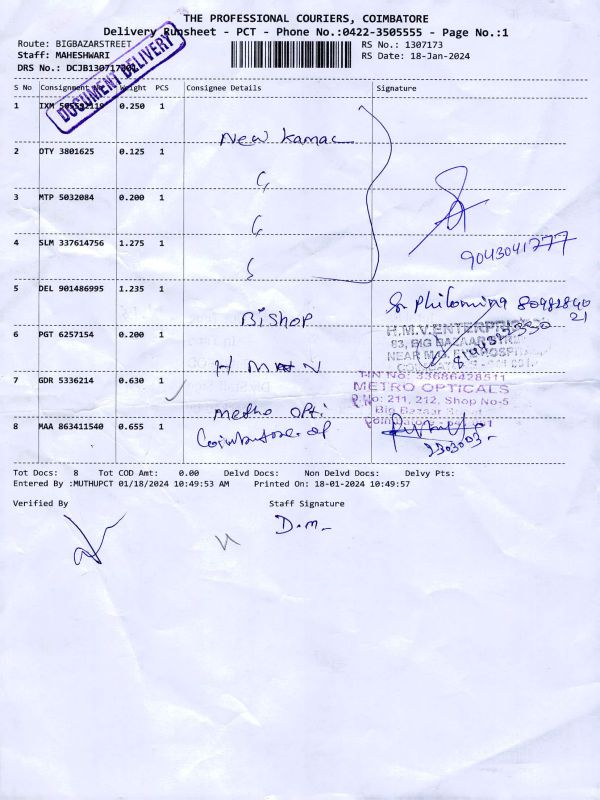 THE PROFESSIONAL COURIERS, COIMBATORE
Delivery Runsheet - PCT - Phone No.:0422-3505555 - Page No.:1
Route: BIGBAZARSTREET RS No.: 1307173
Staff: MAHESHWARI RS Date: 18-Jan-2024
DRS No.: DCJB1307173
DOCUMENT DELIVERY
S No Consignment Weight PCS Consignee Details Signature
1 IXM 0.250 1
New Kamal
2 DTY 3801625 0.125 1
3 MTP 5032084 0.200 1
4 SLM 337614756 1.275 1
9043041277
5 DEL 901486995 1.235 1
Sr Philomina
Bishop
6 PGT 6257154 0.200 1
H.M.V.ENTERPRISE
83, BIG BAZAAR
7 GDR 5336214 0.630 1
METRO OPTICALS
No: 211, 212, Shop No-5
Big Bazaar
Metho opti
8 MAA 863411540 0.655 1
Coimbatore
2303003
Tot Docs: 8 Tot COD Amt: 0.00 Delvd Docs: Non Delvd Docs: Delvy Pts:
Entered By :MUTHUPCT 01/18/2024 10:49:53 AM Printed On: 18-01-2024 10:49:57
Verified By Staff Signature
D.M